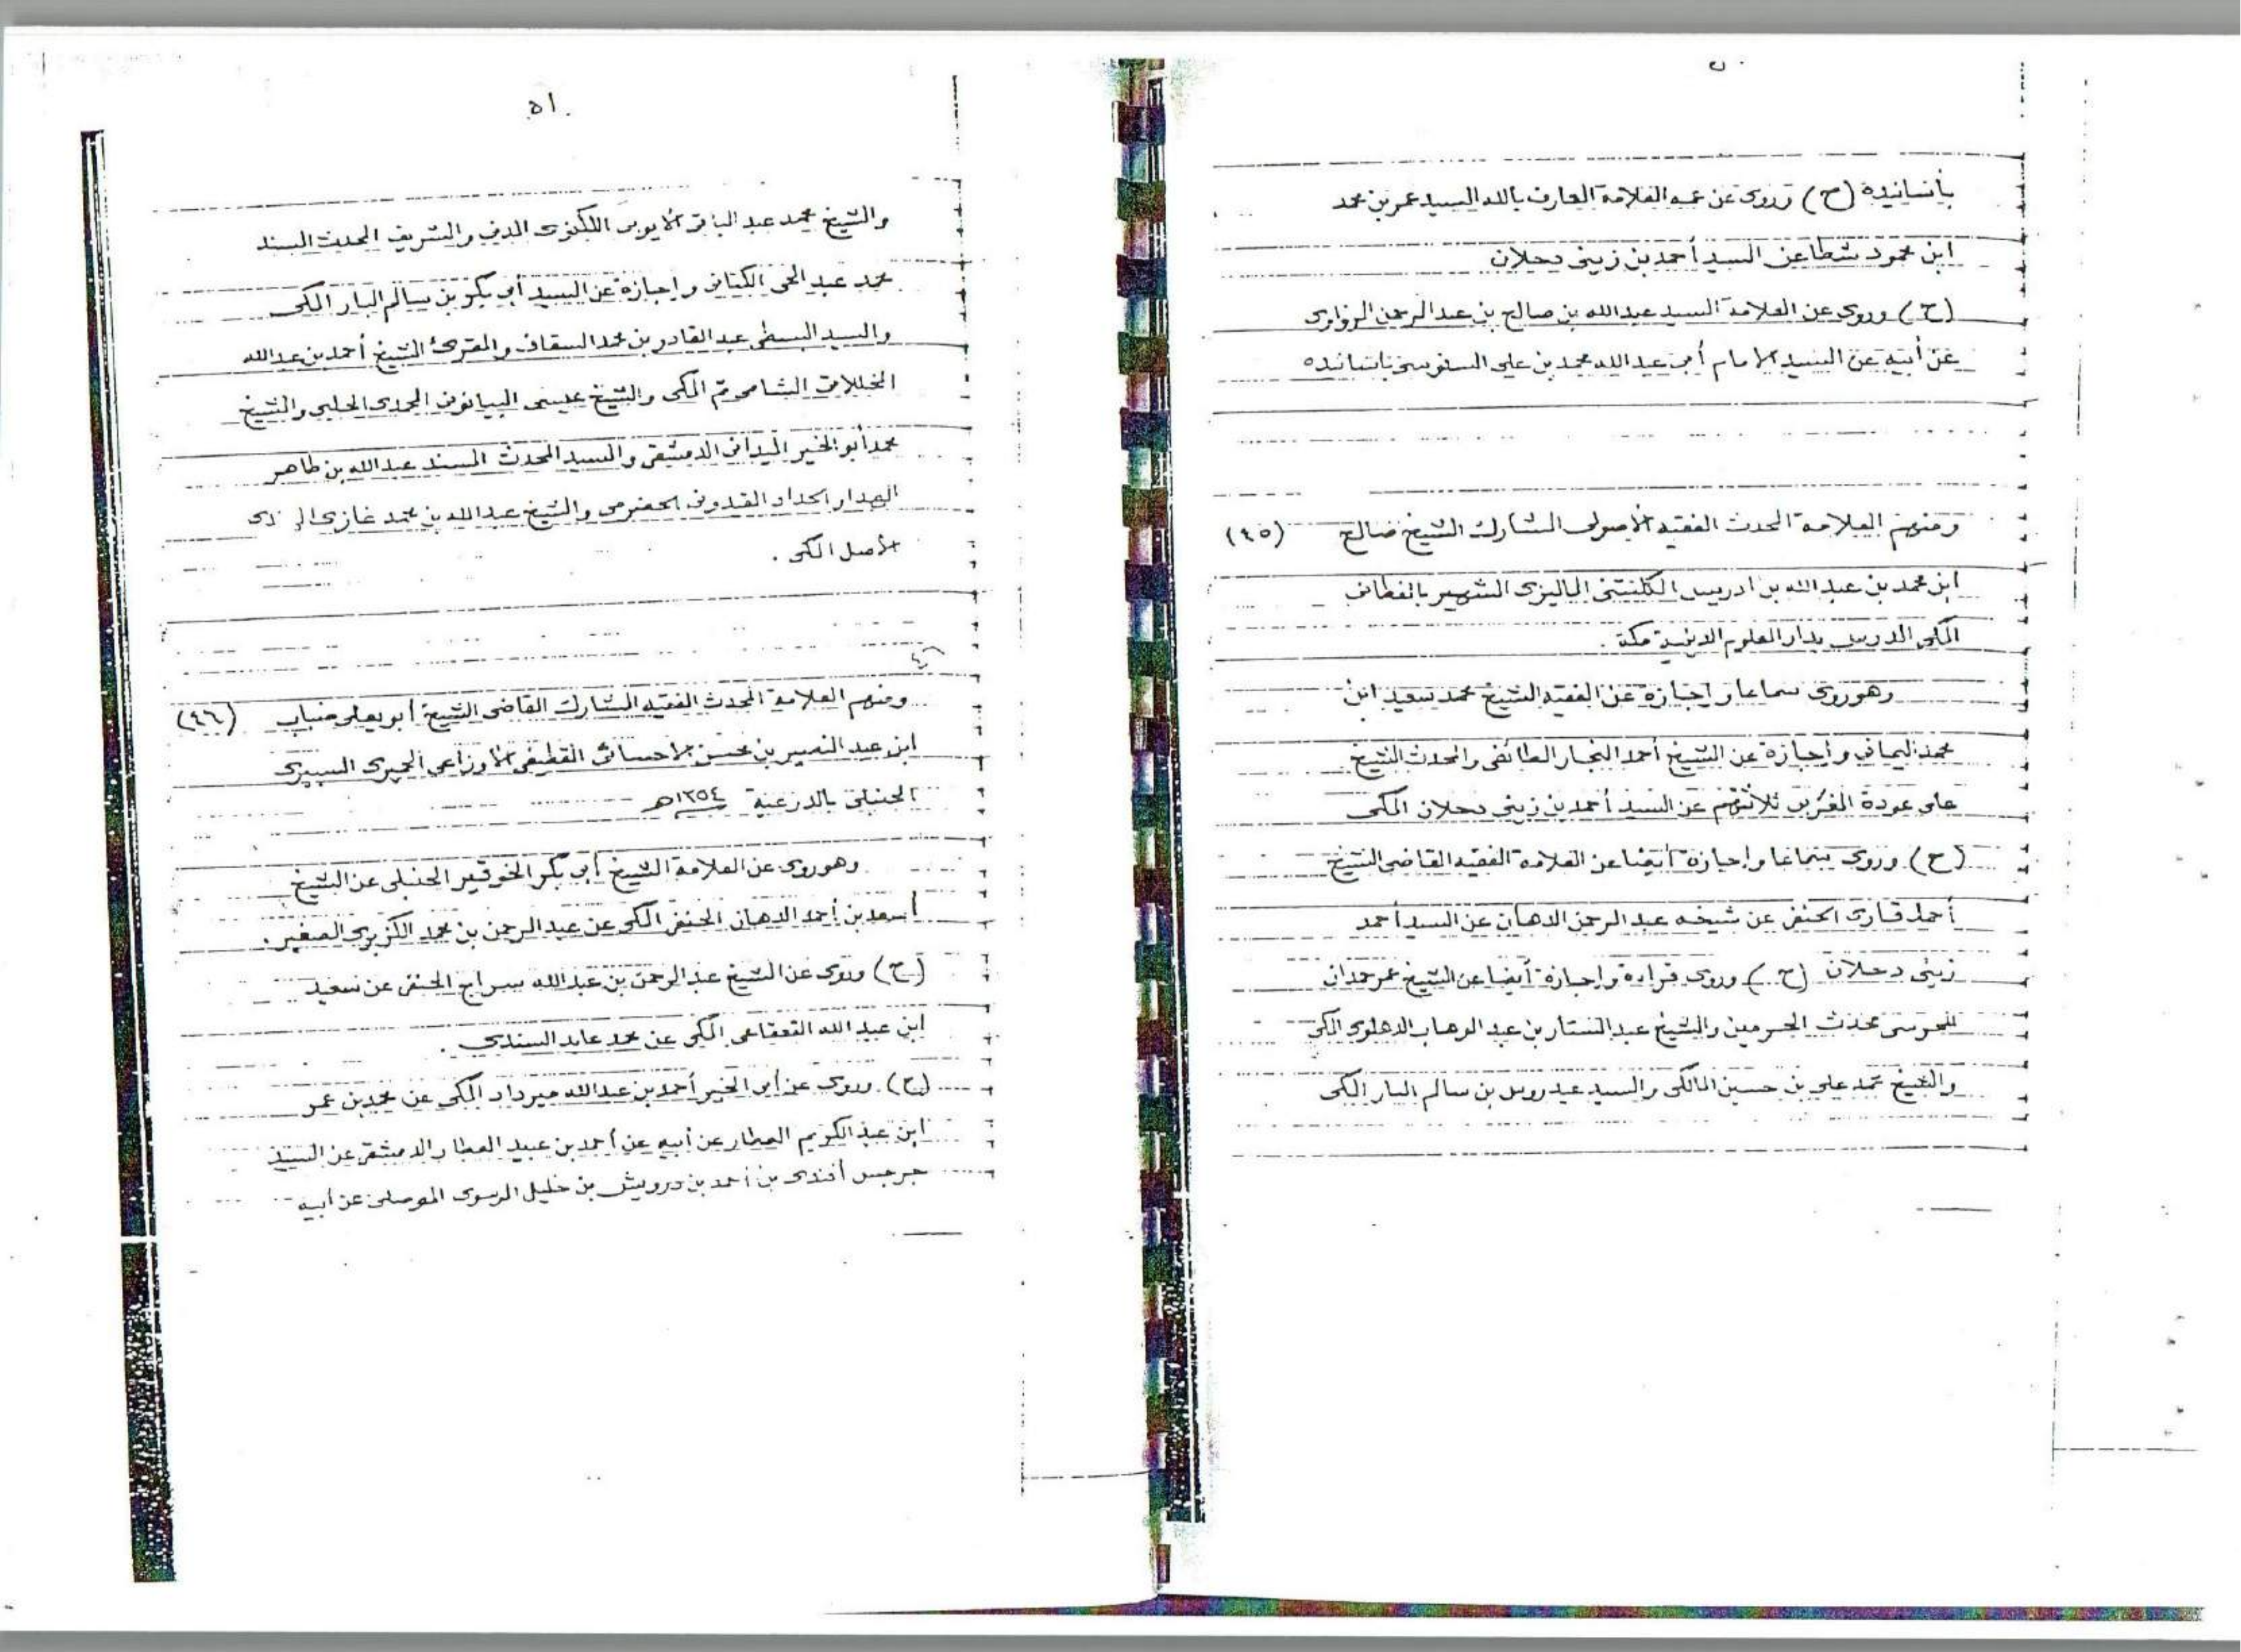 بأسانيده (ح) وروى عن عمه العلامة العارف بالله السيد عمر بن محمد
ابن محمود شطا عن السيد أحمد بن زيني دحلان
(ح) وروى عن العلامة السيد عبدالله بن صالح بن عبدالرحمن الزواوى
عن أبيه عن السيد الامام أبى عبدالله محمد بن على السنوسى بأسانيده
ومنهم العلامة المحدث الفقيه الأصولى المشارك الشيخ صالح (٤٥)
ابن محمد بن عبد الله بن ادريس الكلنتنى الماليزى الشهير بالفطانى
المكى المدرس بدار العلوم الدينية بمكة .
وهو روى سماعا واجازة عن الفقيه الشيخ محمد سعيد ابن
محمد اليمانى واجازة عن الشيخ أحمد النجار الطائفى والمحدث الشيخ
على عودة ثلاثتهم عن السيد أحمد بن زينى دحلان المكى
(ح) وروى سماعا وإجازة أيضا عن العلامة الفقيه القاضى الشيخ
أحمد قارى الحنفى عن شيخه عبد الرحمن الدهان عن السيد أحمد
زينى دحلان (ح) وروى قراءة واجازة أيضا عن الشيخ عمر حمدان
المحرسى محدث الحرمين والشيخ عبد الستار بن عبد الوهاب الدهلوى المكى
والشيخ محمد على بن حسين المالكى والسيد عيدروس بن سالم البار المكى
٥١
والشيخ محمد عبد الباقى الأيوبى اللكنوى المدنى والشريف المحدث المسند
محمد عبد الحى الكتانى واجازة عن السيد أبى بكر بن سالم البار المكى
والسيد عبد القادر بن محمد السقاف والمقرئ الشيخ أحمد بن عبدالله
المخللاتى الشامى ثم المكى والشيخ عيسى البيانونى الحلبى والشيخ
محمد أبو الخير الميدانى الدمشقى والسيد المحدث المسند عبد الله بن طاهر
الهدار الحداد الحضرمى والشيخ عبد الله بن محمد غازى
الأصل المكى .
ومنهم العلامة المحدث الفقيه المشارك القاضى الشيخ أبو يعلى (٤٦)
ابن عبد النصير بن محسن الأحسائى القطيفى الأوزاعى الحميرى
الحنبلى بالدرعية ١٣٥٤هـ
وهو روى عن العلامة الشيخ أبى بكر الخوقير الحنبلى عن الشيخ
أسعد بن أحمد الدهان الحنفى المكى عن عبد الرحمن بن محمد الكزبرى الصغير .
(ح) وروى عن الشيخ عبد الرحمن بن عبد الله سراج الحنفى عن سعيد
ابن عبد الله القعقاعى المكى عن محمد عابد السندى .
(ح) وروى عن أبى الخير أحمد بن عبدالله ميرداد المكى عن محمد بن عمر
ابن عبد الكريم العطار عن أبيه عن أحمد بن عبيد العطار الدمشقى عن السيد
جرجيس أفندى بن أحمد بن درويش بن خليل الموصلى عن أبيه